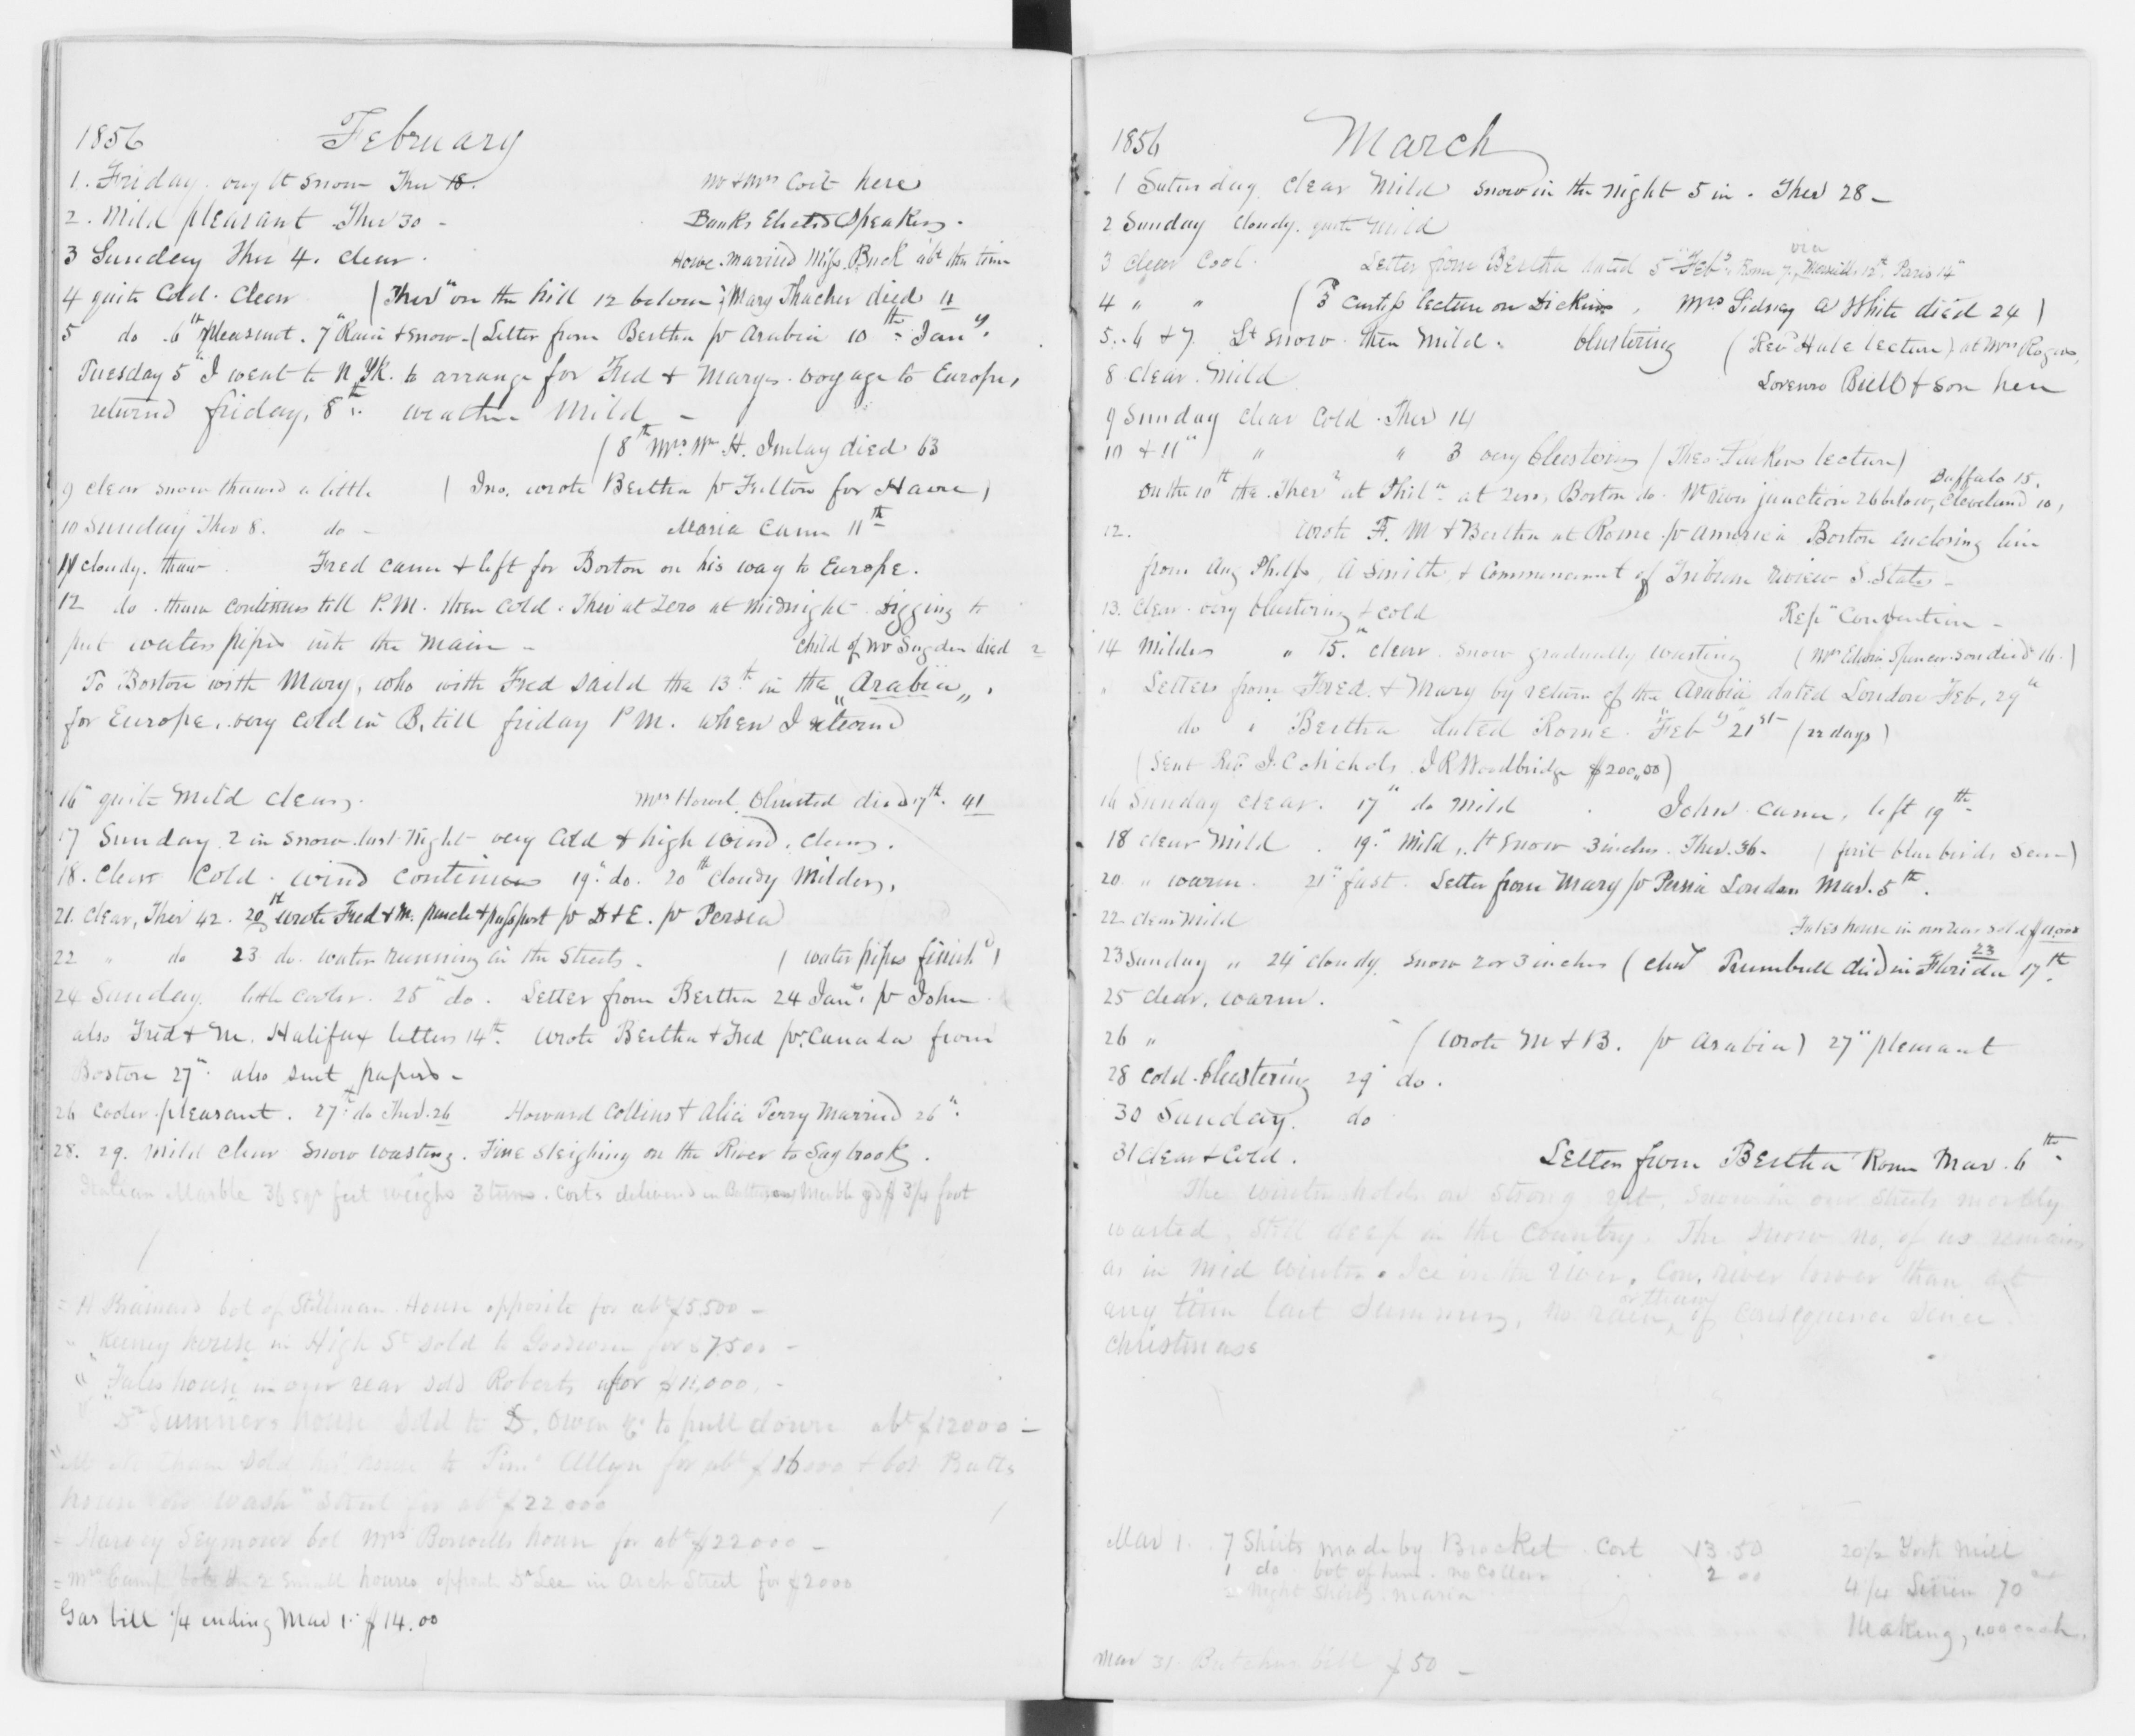 1856 February
1. Friday. very lt snow Ther 18. Mr & Mrs Coit here
2. Mild pleasant Ther 30 - Banks Elected Speaker.
3 Sunday Ther 4. clear. Howe married Miss Buck abt this time
4 quite Cold. Clear (Ther" on the hill 12 below) Mary Thacher died 11
5 do .6th pleasant. 7" Rain & snow - (Letter from Bertha pr Arabia 10th Jany.
Tuesday 5" I went to N Yk. to arrange for Fred & Marys voyage to Europe,
returnd friday, 8th. weather Mild -
(8th Mrs. Wm H. Imlay died 63
9 clear snow thawed a little (Jno. wrote Bertha pr Fulton for Havre)
10 Sunday Ther 8. do - Maria came 11th
11 cloudy. thaw Fred came & left for Boston on his way to Europe.
12 do. thaw continues till P.M. then cold. Ther at Zero at Midnight. Digging to
put waters pipes into the main - Child of Mr Sugden died 2
To Boston with Mary, who with Fred saild the 13th in the "Arabia",
for Europe. very cold in B. till friday P M. when I returnd
16" quite Mild clear. Mrs Howel Olmsted died 17th. 41
17 Sunday 2 in snow last night very Cold & high wind. clear.
18. Clear Cold. wind continues 19". do. 20th cloudy Milder,
21. clear, Ther 42. 20th wrote Fred & M. parcele & passport pr D & E. pr Persia
22 " do 23 do. water running in the streets. (water pipes finishd)
24 Sunday. little cooler. 25" do. Letter from Bertha 24 Jany. pr John
also Fred & M. Halifax letters 14th. wrote Bertha & Fred pr. Canada from
Boston 27". also sent papers -
26 Cooler pleasant. 27th. do Ther. 26 Howard Collins & Alice Terry Married 26".
28. 29. Mild clear snow wasting. Fine sleighing on the River to Saybrook.
Italian Marble 36 sqr feet weighs 3 tuns. Costs delivered in
= H Brainard bot of Stillman House opposite for abt $5,500 -
" Keeney house in High St sold to Goodwin for $7500 -
" Fales house in our rear sold Roberts for $11,000. -
" Dr Sumners house sold to D. Owen &c to pull down abt $12000 -
sold his house to Tim. Allyn for abt $16000 & bot Butts
house on Wash" Street for abt $22,000
= Harvey Seymour bot Mrs Boswells house for abt $22000 -
= Mrs Camp bot the 2 small houses opposite Dr Lee in Arch Street for $2000
Gas bill 1/4 ending Mar 1. $14.00
1856 March
1 Saturday clear Mild snow in the night 5 in. Ther 28 -
2 Sunday cloudy. quite mild
3 clear Cool. Letter from Bertha dated 5" Feby. Rome pr via Marseills 12th. Paris 14"
4 " " (3d Curtis lecture on Dickins, Mrs Sidney A White died 24)
5..6 & 7. Lt snow. then mild. blustering (Revd Hale lecture) at Mrs Rogers,
8 clear. Mild Lorenzo Bull & son here
9 Sunday clear Cold. Ther 14
10 & 11" " " 3 very blustering (Theo. Parker lecture)
Buffalo 15.
On the 10th the Ther" at Phila at zero, Boston do. Wt River junction 26 below, Cleveland 10,
12. wrote F. M & Bertha at Rome pr America Boston enclosing line
from Aug Phelps, A Smith, & Commencement of Tribune review S. States -
13. clear. very blustering & cold Repn Convention -
14 Milder " 15." clear. snow gradually wasting (Mrs Edwin Spencer son died 16.)
Letters from Fred. & Mary by return of the Arabia dated London Feb. 29"
do " Bertha dated Rome Feby 21st (22 days)
(Sent Revd J. C Nichols J R Woodbridge $200,00)
16 Sunday clear. 17" do mild John came, left 19th.
18 clear Mild. 19." Mild, lt snow 3 inches. Ther. 36 - (first blue birds seen)
20 " warm. 21" fast. Letter from Mary pr Persia London Mar. 5th.
22 clear Mild Fales house in our rear sold $11.000
23 Sunday " 24" cloudy snow 2 or 3 inches (Chs Trumbull died in Florida 17th. 23
25 clear. warm.
26 " (wrote M & B. pr Arabia) 27" pleasant
28 cold. blustering 29" do.
30 Sunday. do
31 clear & Cold. Letter from Bertha Rome Mar. 6th
The winter holds on strong yet, snow in our streets mostly
wasted, still deep in the Country. The snow No. of us remains
as in mid winter. Ice in the river. Con. river lower than at
any time last summer, no rain or thaw of consequence since
christmass
Mar 1. 7 Shirts made by Brocket. Cost 13.50 20 1/2 York Mill
1 do bot of him. no Collars 2 00 4 Linen 70
night shirts Maria Making, 1.00 each.
Mar 31. Butchers bill $50 -